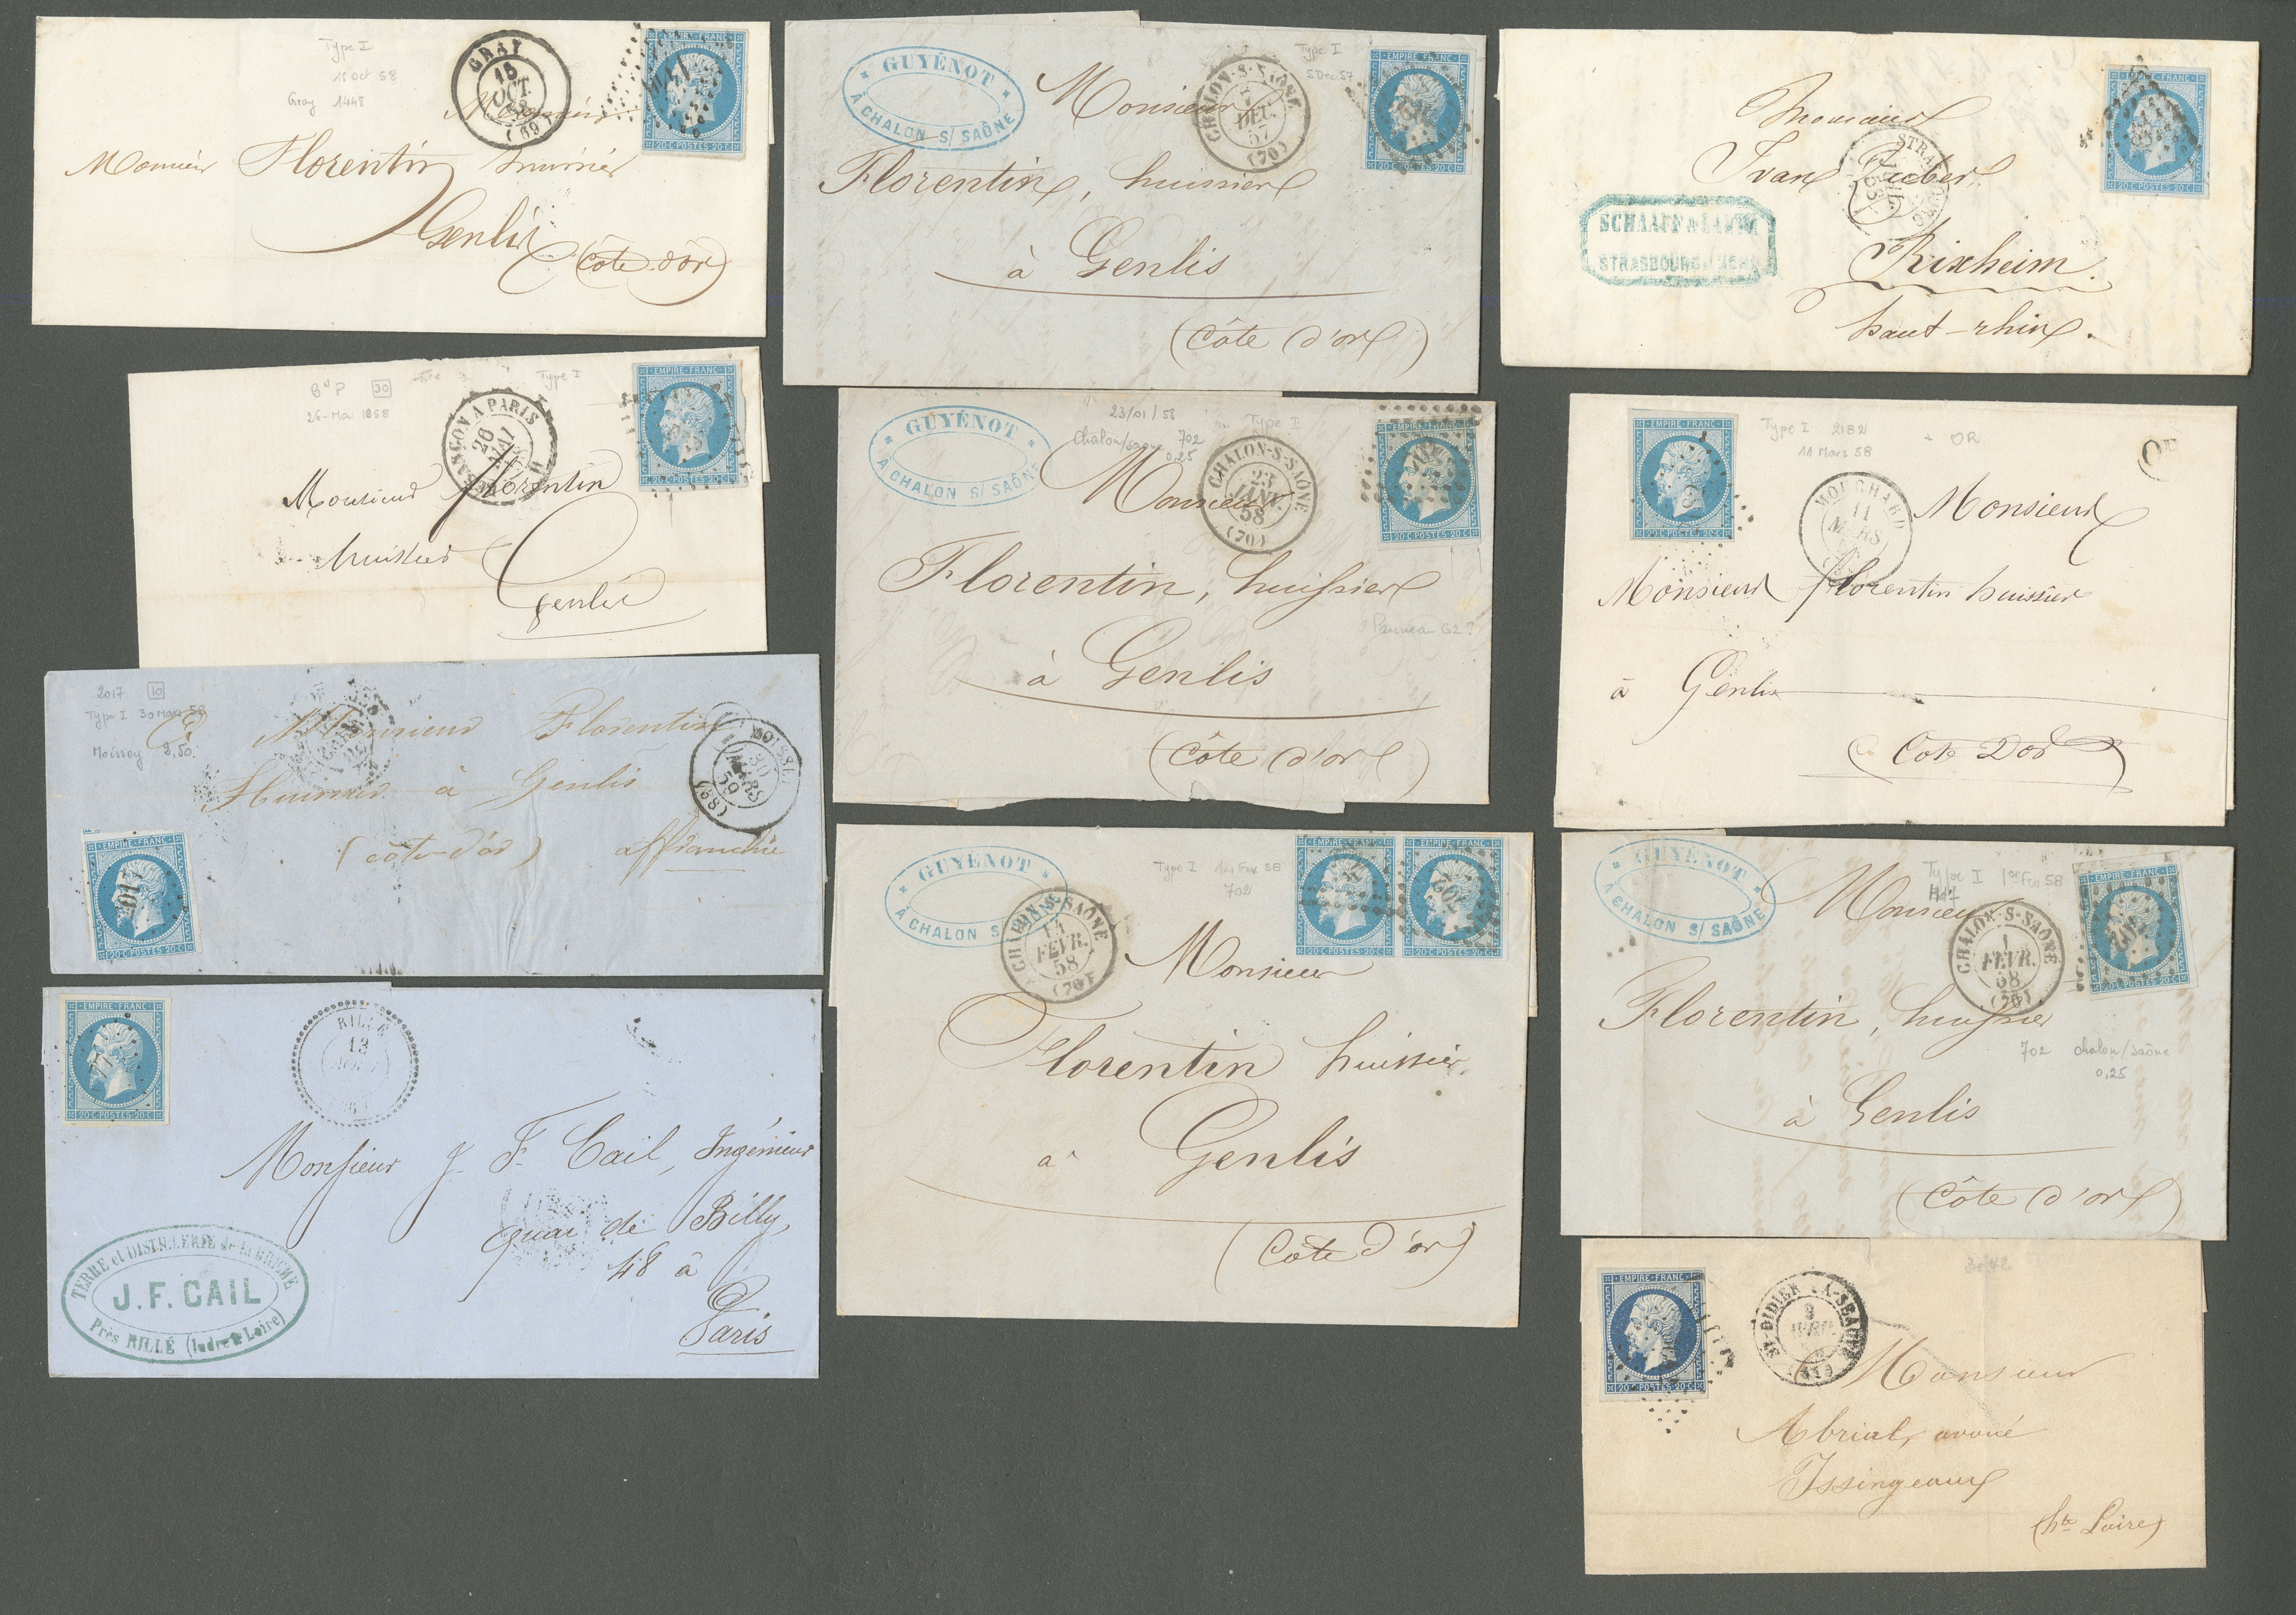 Type I
15 Oct 58
Gray 1448
GRAY
15
OCT.
58
(69)
EMPIRE FRANC
20 C POSTES 20 C
Monsieur Florentin huissier
Genlis
(Côte d'or)
Type I
26 Mai 1858
30
BESANÇON A PARIS
26
MAI
58
EMPIRE FRANC
20 C POSTES 20 C
Monsieur florentin
huissier
Genlis
2017 10
Type I 30 Mars 58
Moissey 8,50.
MOISSEY
30
MARS
59
(88)
A Monsieur Florentin
Huissier à Genlis
(côte d'or) affranchie
2017
EMPIRE FRANC
20 C POSTES 20 C
EMPIRE FRANC
20 C POSTES 20 C
RILLÉ
13
Monsieur J. F. Cail, Ingénieur
quai de Billy,
48 à
Paris
TERRE et DISTILLERIE de la BRÈCHE
J. F. CAIL
Près RILLÉ (Indre & Loire)
GUYÉNOT
À CHALON S/ SAÔNE
Type I
5 Dec 57
CHALON-S-SAÔNE
DEC.
57
(70)
EMPIRE FRANC
20 C POSTES 20 C
Monsieur
Florentin, huissier
à Genlis
(Côte d'or)
GUYÉNOT
À CHALON S/ SAÔNE
23/01/58
Chalon/saone 702
0,25
Type I
CHALON-S-SAÔNE
23
JANV.
58
(70)
EMPIRE FRANC
20 C POSTES 20 C
Monsieur
Florentin, huissier
Panneau G2?
à Genlis
(Côte d'or)
GUYÉNOT
À CHALON S/ SAÔNE
Type I 14 Fev 58
702
CHALON-S-SAÔNE
14
FEVR.
58
(70)
EMPIRE FRANC
20 C POSTES 20 C
EMPIRE FRANC
702
20 C POSTES 20 C
Monsieur
Florentin huissier
a Genlis
(Côte d'or)
EMPIRE FRANC
20 C POSTES 20 C
Monsieur
Ivan Zuber
Rixheim.
haut-rhin.
STRASBOURG
SCHAAFF & LAUTH
STRASBOURG
EMPIRE FRANC
20 C POSTES 20 C
Type I 2182
11 Mars 58
OR
OR
MOUCHARD
11
MARS
Monsieur
Monsieur florentin huissier
à Genlis
(Cote D'or)
GUYÉNOT
À CHALON S/ SAÔNE
Type I 1er Fev 58
CHALON-S-SAÔNE
1
FEVR.
58
(70)
EMPIRE FRANC
702
20 C POSTES 20 C
Monsieur
Florentin, huissier
702 Chalon/saône
0,25
à Genlis
(Côte d'or)
EMPIRE FRANC
20 C POSTES 20 C
ST-DIDIER-LA-SEAUVE
Monsieur
Abrial, avoué
Issingeaux
(hte Loire)